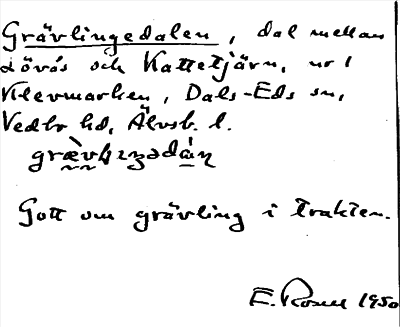 Grävlingedalen, dal mellan
Lövås och Kattetjärn, nr 1
Klevmarken, Dals-Eds sn,
Vedbo hd, Älvsb. l.
Gott om grävling i trakten.
E. 1950